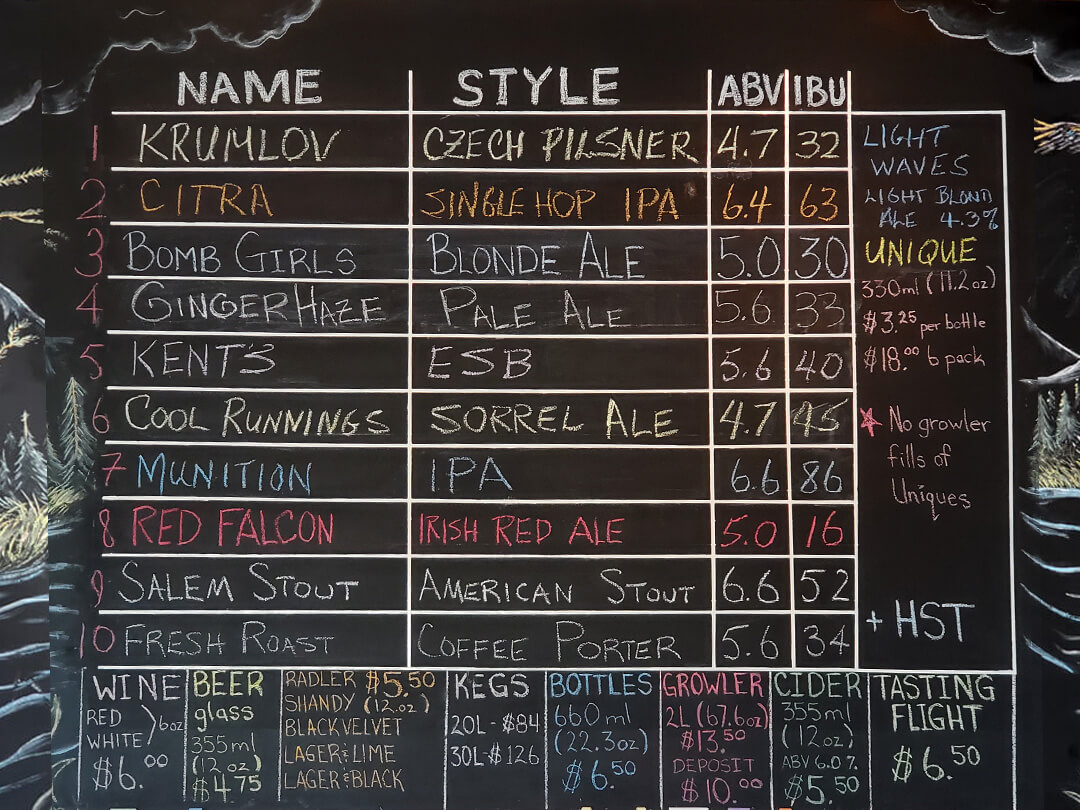 NAME STYLE ABV IBU
1 KRUMLOV CZECH PILSNER 4.7 32
2 CITRA SINGLE HOP IPA 6.4 63
3 BOMB GIRLS BLONDE ALE 5.0 30
4 GINGER HAZE PALE ALE 5.6 33
5 KENT'S ESB 5.6 40
6 COOL RUNNINGS SORREL ALE 4.7 45
7 MUNITION IPA 6.6 86
8 RED FALCON IRISH RED ALE 5.0 16
9 SALEM STOUT AMERICAN STOUT 6.6 52
10 FRESH ROAST COFFEE PORTER 5.6 34
LIGHT
WAVES
LIGHT BLOND
ALE 4.3%
UNIQUE
330ml (11.2oz)
$3.25 per bottle
$18.00 6 pack
No growler
fills of
Uniques
+ HST
WINE
RED
WHITE
6oz
$6.00
BEER
glass
355ml
(12oz)
$4.75
RADLER $5.50
SHANDY (12oz)
BLACK VELVET
LAGER & LIME
LAGER & BLACK
KEGS
20L - $84
30L - $126
BOTTLES
660ml
(22.3oz)
$6.50
GROWLER
2L (67.6oz)
$13.50
DEPOSIT
$10.00
CIDER
355ml
(12oz)
ABV 6.0%
$5.50
TASTING
FLIGHT
$6.50